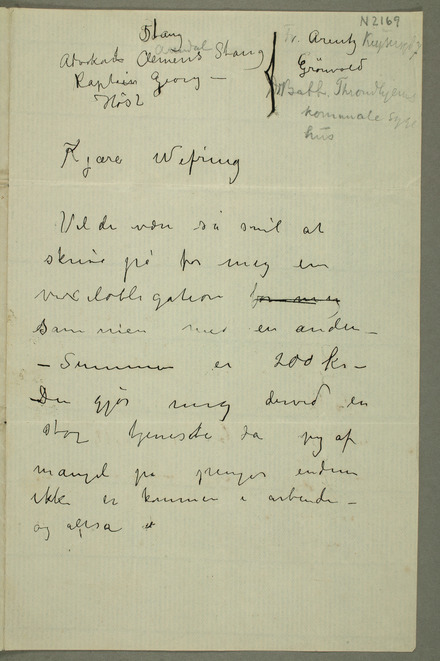 N 2169
Stang
Advokat Clemens Stang
Arendal
Kaptein Georg —
Høst
Fr. Arentz
Grönvold
Bath. Throndhjems
komunale syge
hus
Kjære Wefring
Vil du være så snil at
skrive på for meg en
vexelobligation for meg
sammen med en anden —
— Summen er 200 kr —
Du gjør meg derved en
stor tjeneste da jeg af
mangel på penger endnu
ikke er kommen i arbeide —
og altså er